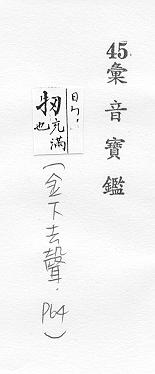 45彙音寶鑑
牣充滿也
(金下去聲. P64)